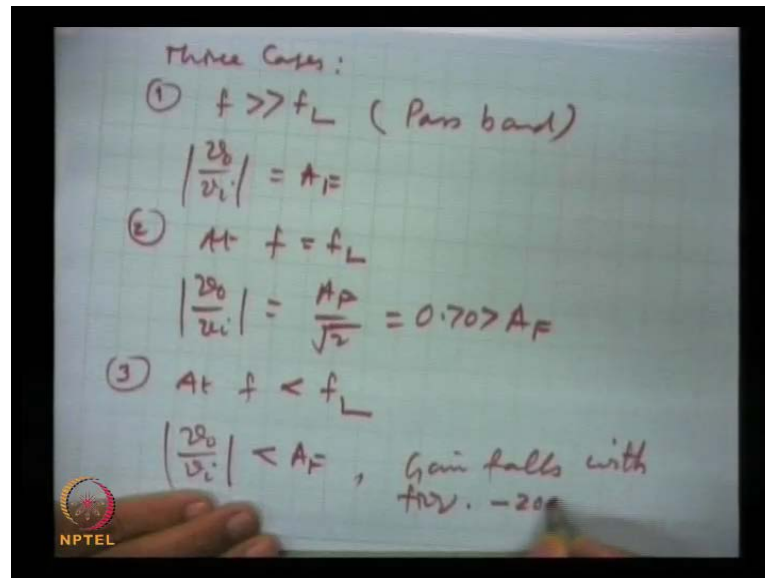 Three Cases:
① f >> f_L ( Pass band)
|v_o/v_i| = A_F
② At f = f_L
|v_o/v_i| = A_F/√2 = 0.707 A_F
③ At f < f_L
|v_o/v_i| < A_F , Gain falls with
frq. -20
NPTEL